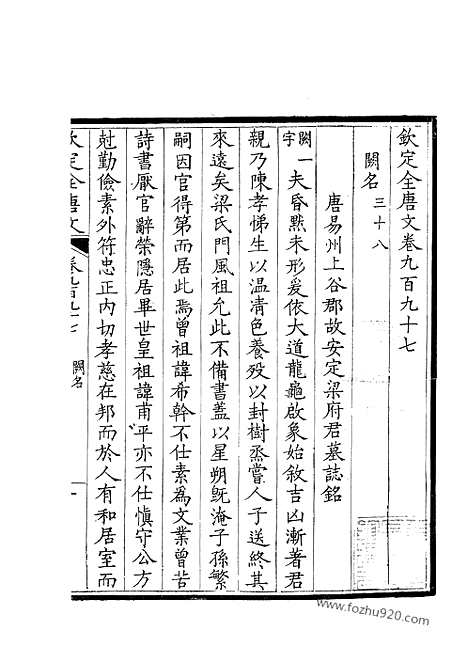 欽定全唐文卷九百九十七
闕名 三十八
唐易州上谷郡故安定梁府君墓誌銘
闕一字夫昏默未形爰依大道龍龜啟象始敘吉凶漸著君
親乃陳孝悌生以温清色養歿以封樹烝嘗人子送終其
來遠矣梁氏門風祖允此不備書蓋以星朔既淹子孫繁
嗣因官得第而居此焉曾祖諱希幹不仕素爲文業曾苦
詩書厭官辭榮隱居畢世皇祖諱甫平亦不仕愼守公方
尅勤儉素外符忠正內切孝慈在邦而於人有和居室而
欽定全唐文 卷九百九十七 闕名 一
www.fozhu920.com